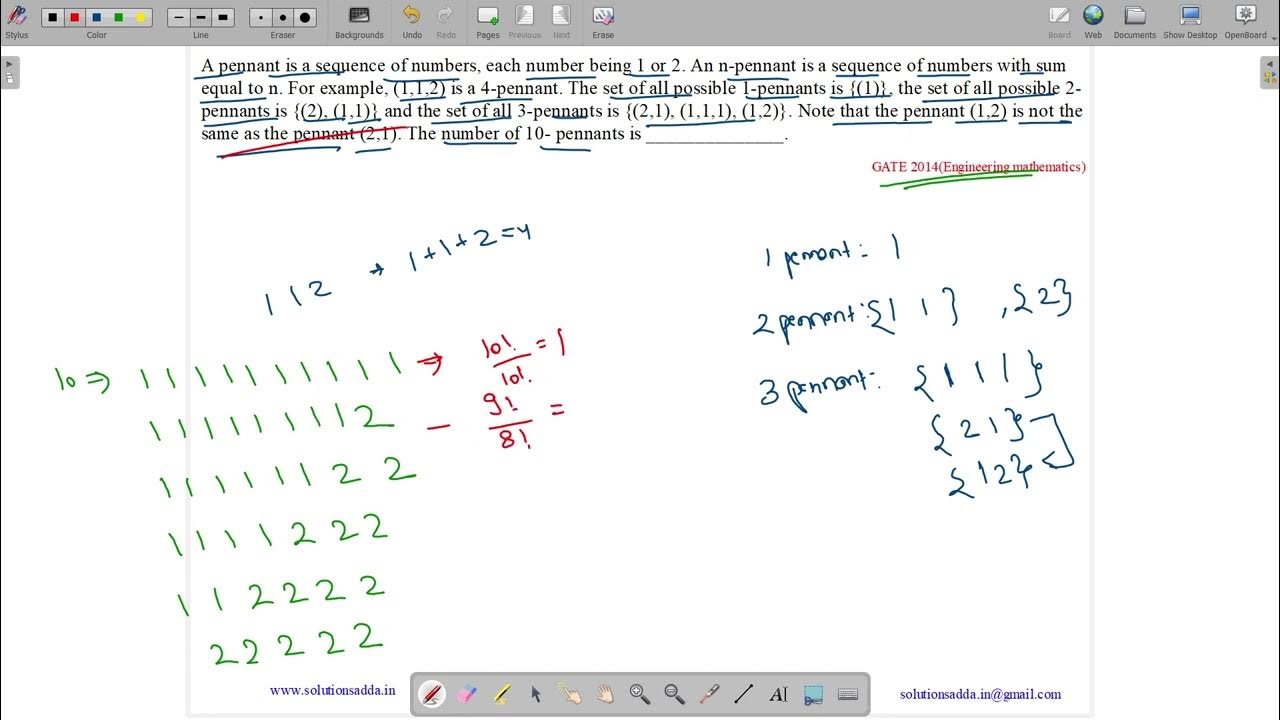 Stylus Color Line Eraser Backgrounds Undo Redo Pages Previous Next Erase Board Web Documents Show Desktop OpenBoard
A pennant is a sequence of numbers, each number being 1 or 2. An n-pennant is a sequence of numbers with sum
equal to n. For example, (1,1,2) is a 4-pennant. The set of all possible 1-pennants is {(1)}, the set of all possible 2-
pennants is {(2), (1,1)} and the set of all 3-pennants is {(2,1), (1,1,1), (1,2)}. Note that the pennant (1,2) is not the
same as the pennant (2,1). The number of 10- pennants is _______________.
GATE 2014(Engineering mathematics)
1 1 2 → 1+1+2=4
1 pennant: 1
2 pennant: {1 1} , {2}
3 pennant: {1 1 1}
{2 1}
{1 2}
10 ⇒ 1 1 1 1 1 1 1 1 1 1 → 10!/10! = 1
1 1 1 1 1 1 1 1 2 — 9!/8! =
1 1 1 1 1 1 2 2
1 1 1 1 2 2 2
1 1 2 2 2 2
2 2 2 2 2
www.solutionsadda.in
solutionsadda.in@gmail.com